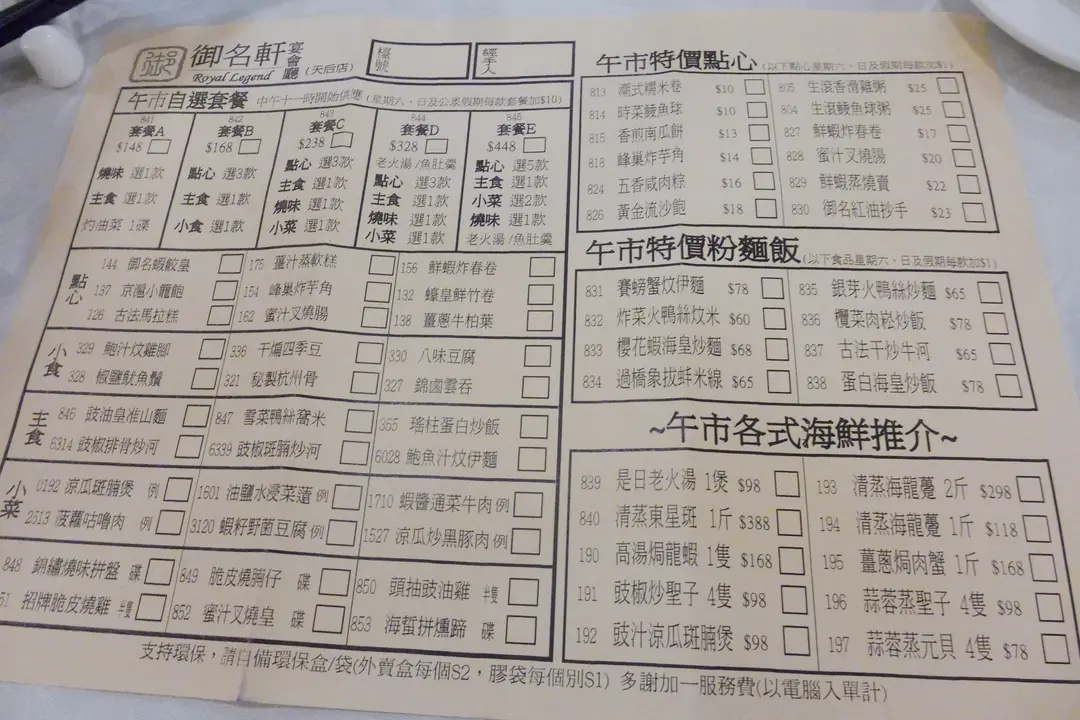 御名軒 宴會廳 (天后店)
Royal Legend
檯號
經手人
午市自選套餐 中午十一時開始供應 (星期六、日及公眾假期每款套餐加$10)
841 842 843 844 845
套餐A 套餐B 套餐C 套餐D 套餐E
$148 $168 $238 $328 $448
燒味 選1款
主食 選1款
灼油菜 1碟
點心 選3款
主食 選1款
小食 選1款
點心 選3款
主食 選1款
燒味 選1款
小菜 選1款
老火湯/魚肚羹
點心 選3款
主食 選1款
燒味 選1款
小菜 選1款
點心 選5款
主食 選1款
小菜 選2款
燒味 選1款
老火湯/魚肚羹
點心
144 御名蝦餃皇 175 薑汁蒸軟糕 156 鮮蝦炸春卷
137 京滬小籠飽 154 峰巢炸芋角 132 蠔皇鮮竹卷
126 古法馬拉糕 162 蜜汁叉燒腸 138 薑蔥牛柏葉
小食
329 鮑汁炆雞腳 336 干煸四季豆 330 八味豆腐
328 椒鹽魷魚鬚 321 秘製杭州骨 327 錦鹵雲吞
主食
846 豉油皇准山麵 847 雪菜鴨絲窩米 355 瑤柱蛋白炒飯
6314 豉椒排骨炒河 6339 豉椒斑腩炒河 6028 鮑魚汁炆伊麵
小菜
0192 涼瓜斑腩煲 例 1601 油鹽水浸菜薳 例 1710 蝦醬通菜牛肉 例
2513 菠蘿咕嚕肉 例 3120 蝦籽野菌豆腐 例 1527 涼瓜炒黑豚肉 例
848 錦繡燒味拼盤 碟 849 脆皮燒腩仔 碟 850 頭抽豉油雞 半隻
51 招牌脆皮燒雞 半隻 852 蜜汁叉燒皇 碟 853 海蜇拼燻蹄 碟
午市特價點心 (以下點心星期六、日及假期每款加$1)
813 潮式糯米卷 $10 805 生滾香滑雞粥 $25
814 時菜鯪魚球 $10 804 生滾鯪魚球粥 $25
815 香煎南瓜餅 $13 827 鮮蝦炸春卷 $17
818 峰巢炸芋角 $14 828 蜜汁叉燒腸 $20
824 五香咸肉粽 $16 829 鮮蝦蒸燒賣 $22
826 黃金流沙飽 $18 830 御名紅油抄手 $23
午市特價粉麵飯 (以下食品星期六、日及假期每款加$1)
831 賽螃蟹炆伊麵 $78 835 銀芽火鴨絲炒麵 $65
832 炸菜火鴨絲炆米 $60 836 欖菜肉崧炒飯 $78
833 櫻花蝦海皇炒麵 $68 837 古法干炒牛河 $65
834 過橋象拔蚌米線 $65 838 蛋白海皇炒飯 $78
~午市各式海鮮推介~
839 是日老火湯 1煲 $98 193 清蒸海龍躉 2斤 $298
840 清蒸東星斑 1斤 $388 194 清蒸海龍躉 1斤 $118
190 高湯焗龍蝦 1隻 $168 195 薑蔥焗肉蟹 1斤 $168
191 豉椒炒聖子 4隻 $98 196 蒜蓉蒸聖子 4隻 $98
192 豉汁涼瓜斑腩煲 $98 197 蒜蓉蒸元貝 4隻 $78
支持環保，請自備環保盒/袋(外賣盒每個$2，膠袋每個別$1) 多謝加一服務費(以電腦入單計)